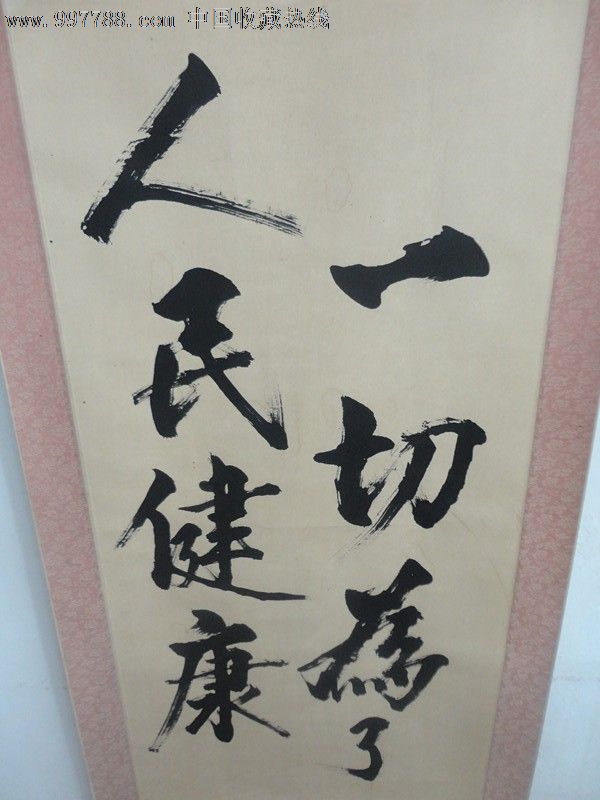 www.997788.com 中国收藏热线
一切為了
人民健康